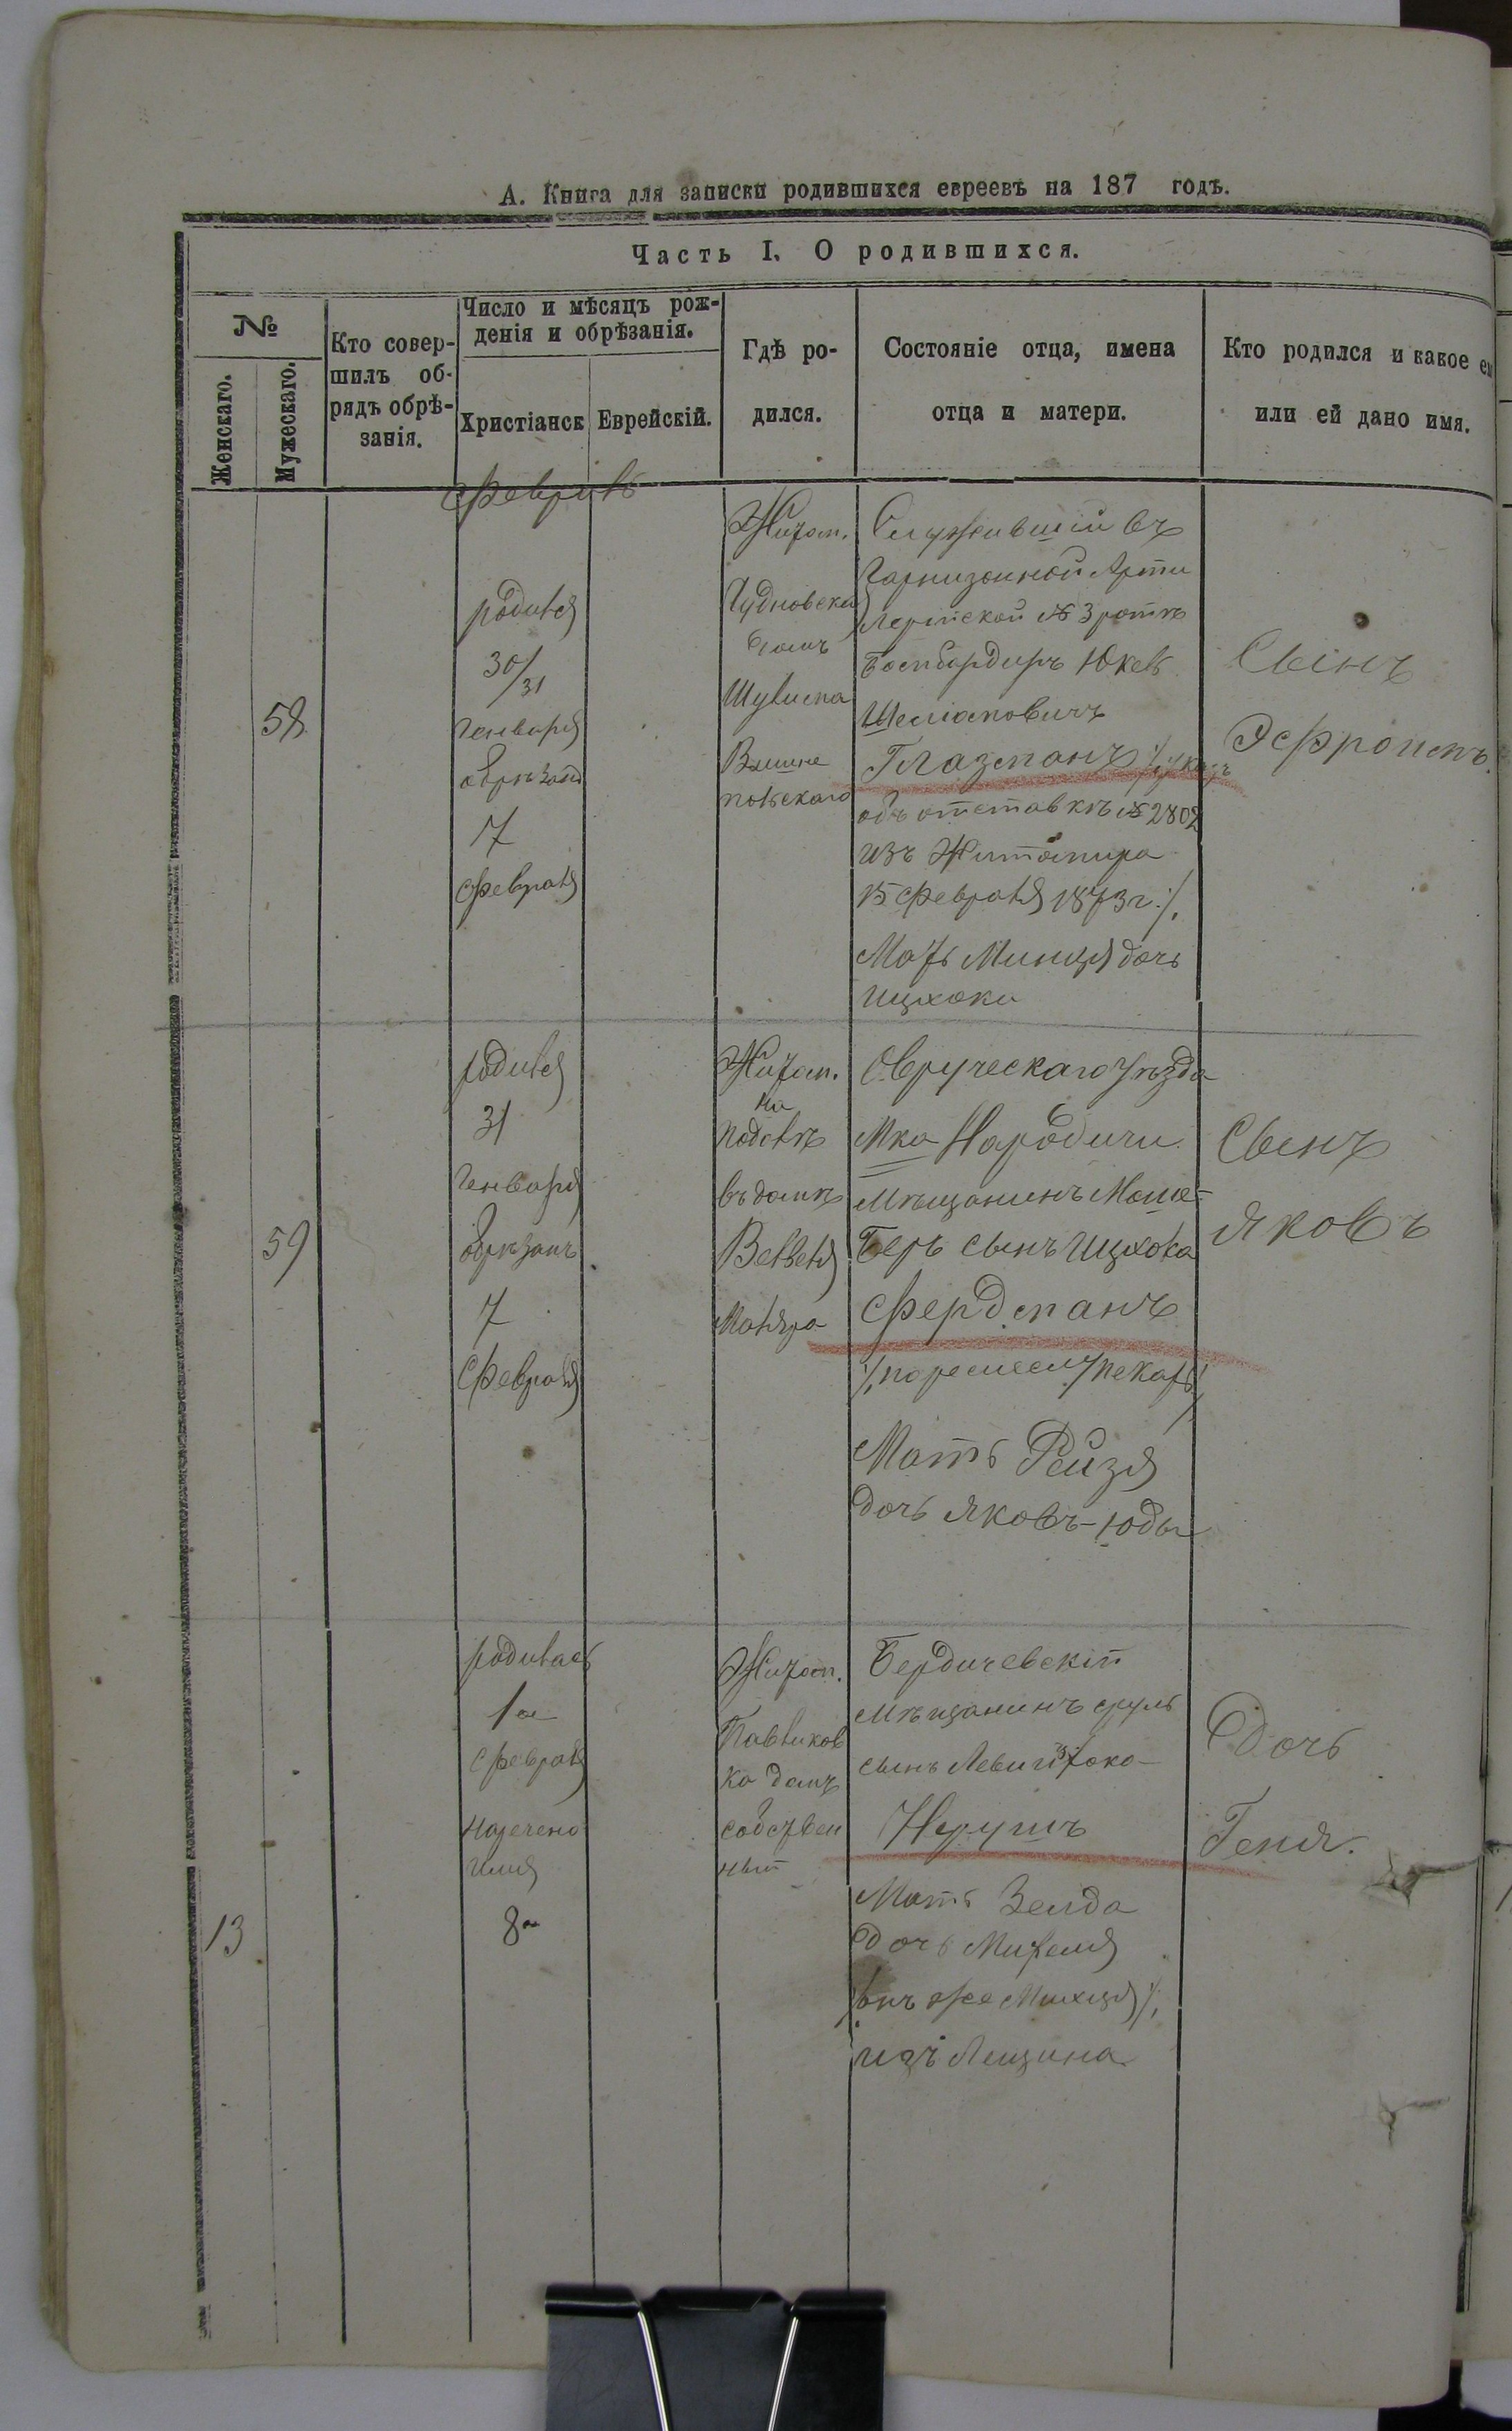 А. Книга для записки родившихся евреевъ на 187 годъ.
Часть I. О родившихся.
№
Женскаго.
Мужескаго.
Кто совер-
шилъ об-
рядъ обрѣ-
занія.
Число и мѣсяцъ рож-
денія и обрѣзанія.
Христіанск
Еврейскій.
Гдѣ ро-
дился.
Состояніе отца, имена
отца и матери.
Кто родился и какое ем
или ей дано имя.
Февраль
58
родился
30/31
Генваря
обрѣзанъ
7
Февраля
Житом.
Чудновска
домъ
Служившій въ
Гарнизонной Арти
лерійской № 3 ротѣ
Бомбардиръ
Глазманъ /: указъ
объ отставкѣ № 2802
изъ Житомира
15 Февраля 1873 г. :/
Мать Минця дочь
Ицхока
Сынъ
Эфроимъ.
59
родился
31
Генваря
обрѣзанъ
7
Февраля
Житом.
на
Подолѣ
въ домѣ
Велвеля
Маляра
Овручскаго уѣзда
Мка Народичи
Мѣщанинъ Моше-
Беръ сынъ Ицхока
Фердманъ
/: по ремеслу пекарь :/
Мать Рейзя
дочь Яковъ-Юды
Сынъ
Яковъ
13
родилась
1го
Февраля
наречено
имя
8го
Житом.
Павликов
ка домъ
собствен
ный
Бердичевскій
Мѣщанинъ Сруль
сынъ
Мать Зелда
дочь Михеля
изъ Лещина
Дочь
Геня.